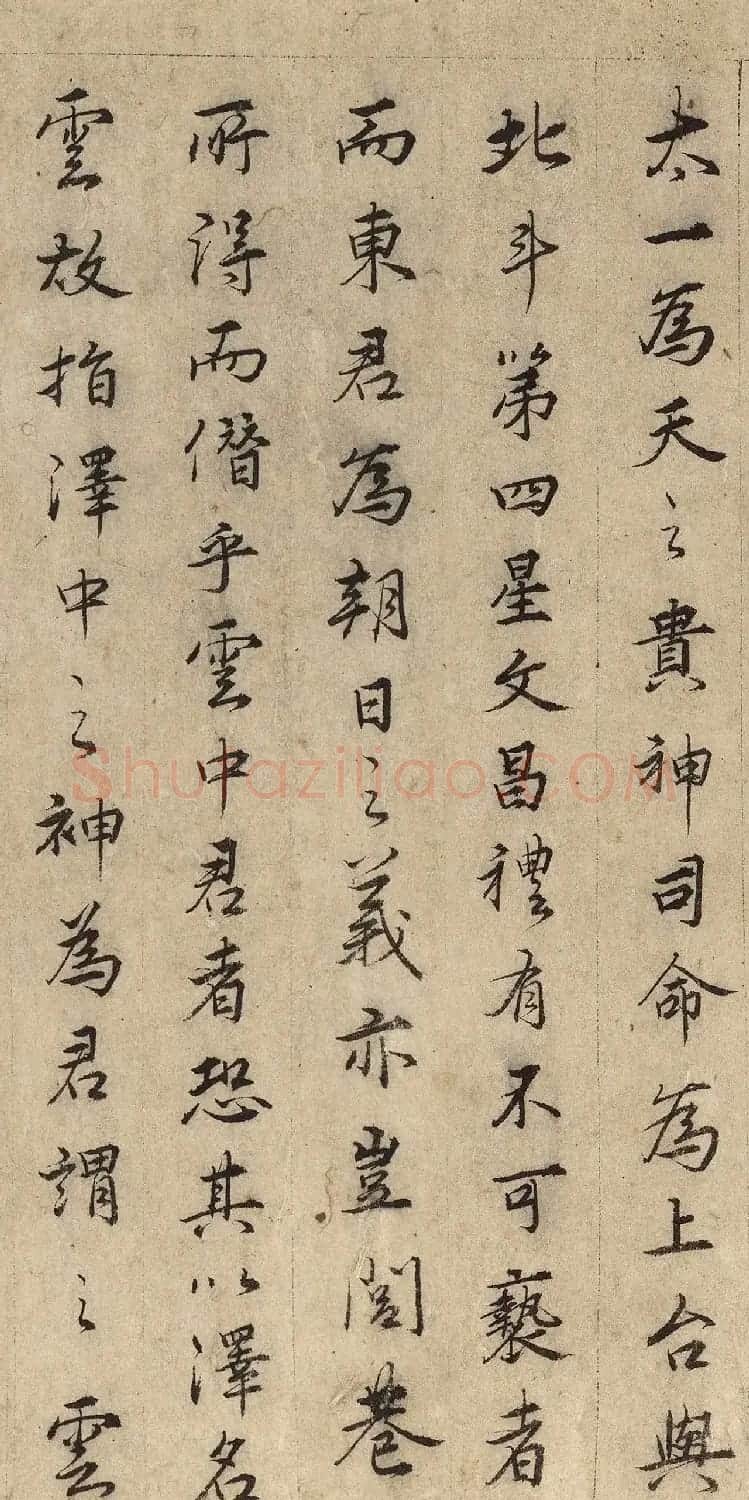 太一為天之貴神司命為上台與
北斗第四星文昌禮有不可褻者
而東君為朝日之義亦豈閭巷
所得而僭乎雲中君者恐其以澤名
雲故指澤中之神為君謂之雲
Shufaziliao.COM